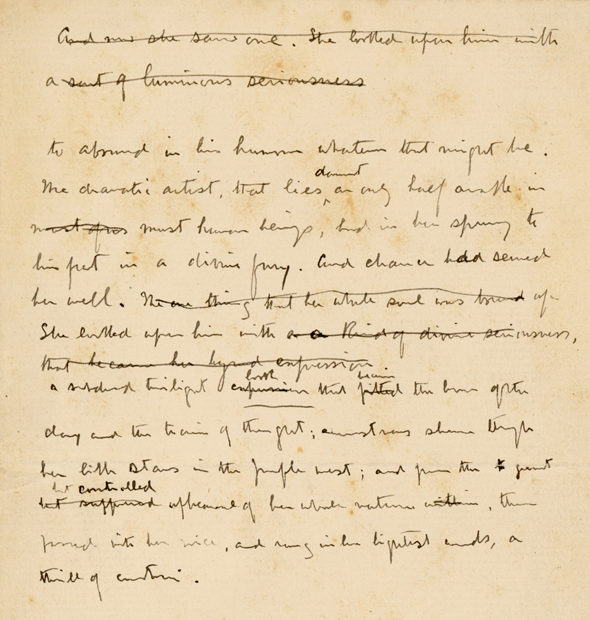 And now she saw one. She looked upon him with
a sort of luminous seriousness
to abound in his humour whatever that might be.
The dramatic artist, that lies dormant or only half awake in
most of us most human beings, had in her sprung to
his feet in a divine fury. And chance had served
her well. The one thing that her whole soul was bound up
She looked upon him with a kind of divine seriousness,
that became her beyond expression
a subdued twilight look that the hour of the
day and the train of thought; earnestness shone through
her like stars in the purple west; and from the great
but controlled upheaval of her whole nature there
passed into her voice, and rang in her lightest words, a
thrill of emotion.